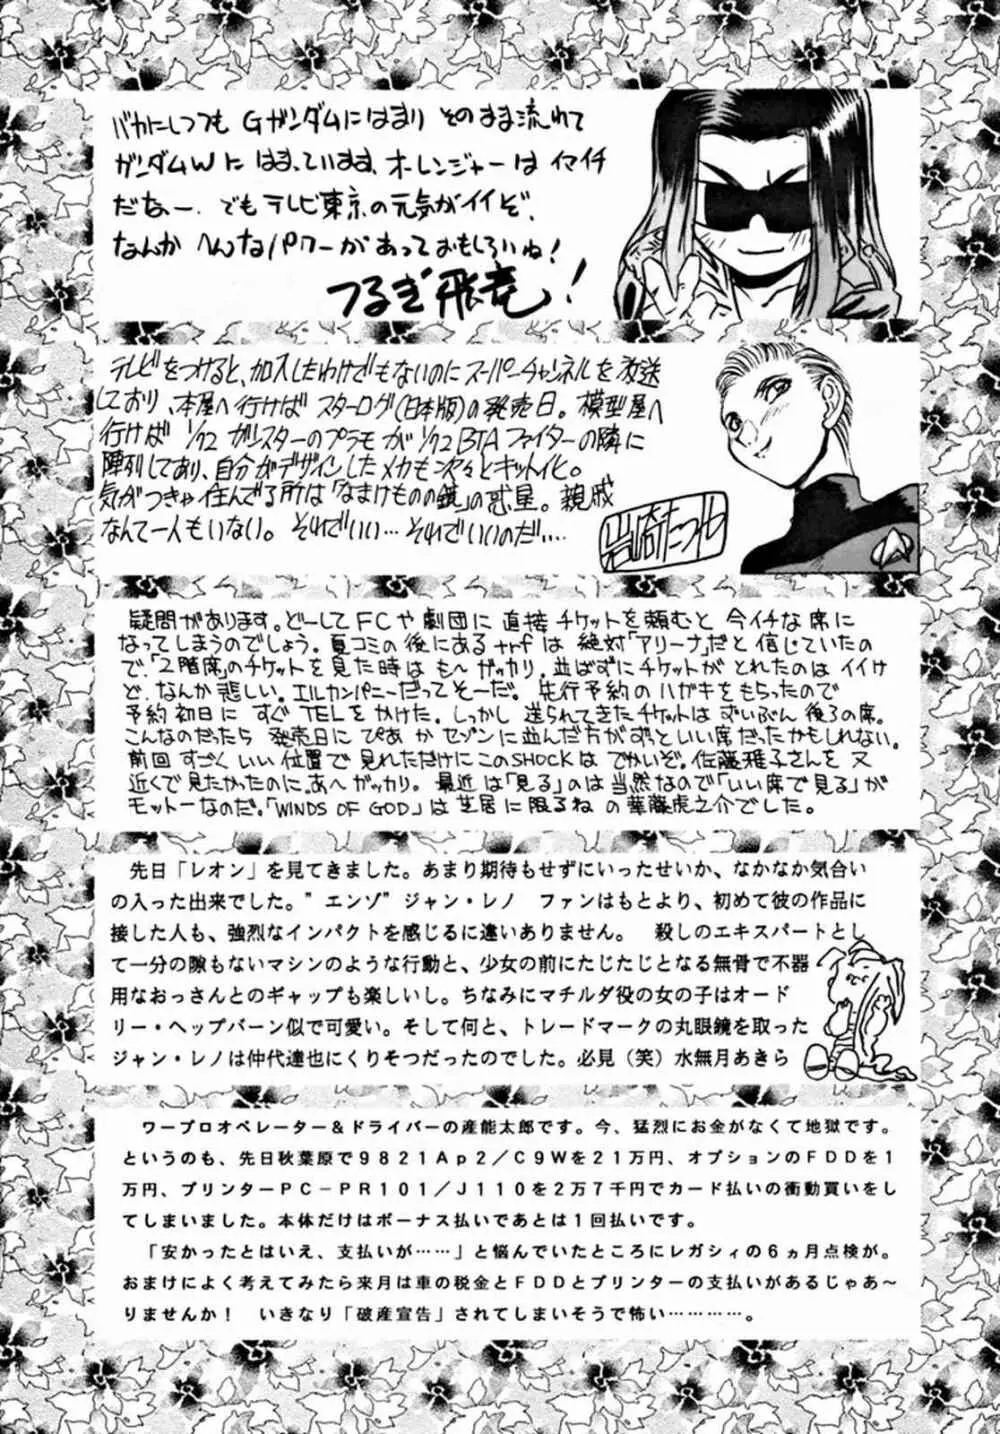 バカにしつつも Gガンダムにはまり そのまま流れて
ガンダムWに はまっています。オーレンジャーは イマイチ
だなー. でもテレビ東京の元気がイイぞ、
なんか へんなパワーがあっておもしろいね!
つるぎ飛竜!
テレビをつけると、加入したわけでもないのにスーパーチャンネルを放送
しており、本屋へ行けばスターログ(日本版)の発売日。模型屋へ
行けば 1/72 ガンスターのプラモが1/72 BTAファイターの隣に
陣列しており、自分がデザインしたメカも次々とキット化。
気がつきゃ住んでる所は「なまけものの鏡」の惑星。親戚
なんて一人もいない。それでいい…それでいいのだ…‥
岩崎たつや
疑問があります。どーしてFCや劇団に 直接チケットを頼むと 今イチな席に
なってしまうのでしょう。夏コミの後にあるtrfは 絶対「アリーナ」だと信じていたの
で、「2階席」のチケットを見た時は も〜 ガッカリ。並ばずにチケットが とれたのは イイけ
ど、なんか 悲しい。エルカンパニーだってそ〜だ。先行予約の ハガキをもらったので
予約初日に すぐTELをかけた。しかし 送られてきたチケットは ずいぶん後ろの席。
こんなのだったら 発売日に ぴあ か セゾンに並んだ方がずっといい席だったかもしれない。
前回 すごく いい位置で 見れただけに このSHOCKは でかいぞ。佐藤雅子さんを 又
近くで見たかったのに。あ〜ガッカリ。最近 は「見る」のは 当然なので「いい席で見る」が
モットーなのだ。「WINDS OF GOD」は芝居に限るね の 華藤虎之介でした。
先日「レオン」を見てきました。あまり期待もせずにいったせいか、なかなか気合い
の入った出来でした。”エンゾ”ジャン・レノ ファンはもとより、初めて彼の作品に
接した人も、強烈なインパクトを感じるに違いありません。 殺しのエキスパートとし
て一分の隙もないマシンのような行動と、少女の前にたじたじとなる無骨で不器
用なおっさんとのギャップも楽しいし。ちなみにマチルダ役の女の子はオード
リー・ヘップバーン似で可愛い。そして何と、トレードマークの丸眼鏡を取った
ジャン・レノは仲代達也にくりそつだったのでした。必見(笑)水無月あきら
ワープロオペレーター&ドライバーの産能太郎です。今、猛烈にお金がなくて地獄です。
というのも、先日秋葉原で9821Ap2/C9Wを21万円、オプションのFDDを1
万円、プリンターPC-PR101/J110を2万7千円でカード払いの衝動買いをし
てしまいました。本体だけはボーナス払いであとは1回払いです。
「安かったとはいえ、支払いが……」と悩んでいたところにレガシィの6ヵ月点検が。
おまけによく考えてみたら来月は車の税金とFDDとプリンターの支払いがあるじゃあ〜
りませんか! いきなり「破産宣告」されてしまいそうで怖い…………。